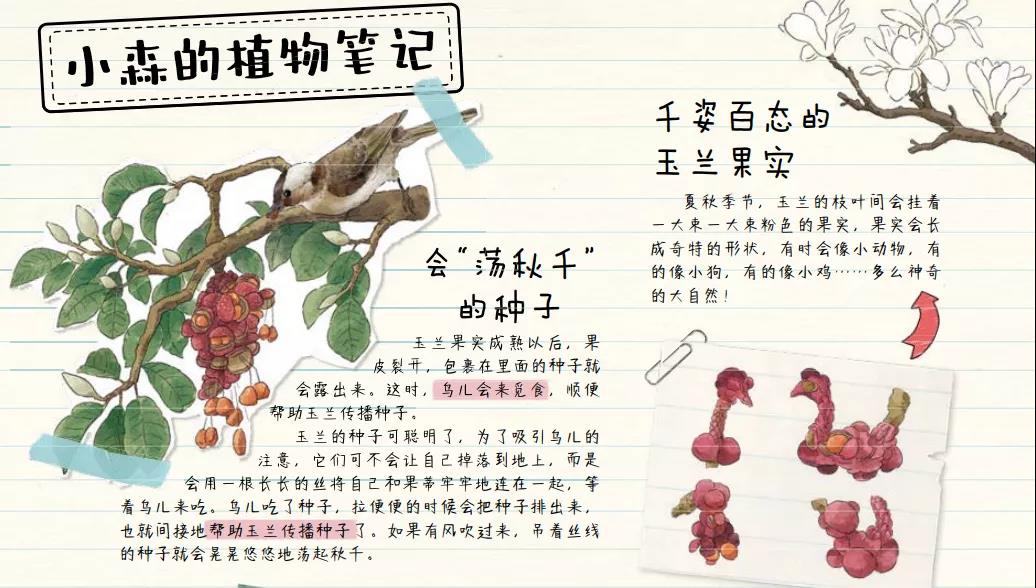 小森的植物笔记
会“荡秋千”
的种子
玉兰果实成熟以后，果
皮裂开，包裹在里面的种子就
会露出来。这时，鸟儿会来觅食，顺便
帮助玉兰传播种子。
玉兰的种子可聪明了，为了吸引鸟儿的
注意，它们可不会让自己掉落到地上，而是
会用一根长长的丝将自己和果蒂牢牢地连在一起，等
着鸟儿来吃。鸟儿吃了种子，拉便便的时候会把种子排出来，
也就间接地帮助玉兰传播种子了。如果有风吹过来，吊着丝线
的种子就会晃晃悠悠地荡起秋千。
千姿百态的
玉兰果实
夏秋季节，玉兰的枝叶间会挂着
一大束一大束粉色的果实，果实会长
成奇特的形状，有时会像小动物，有
的像小狗，有的像小鸡……多么神奇
的大自然！